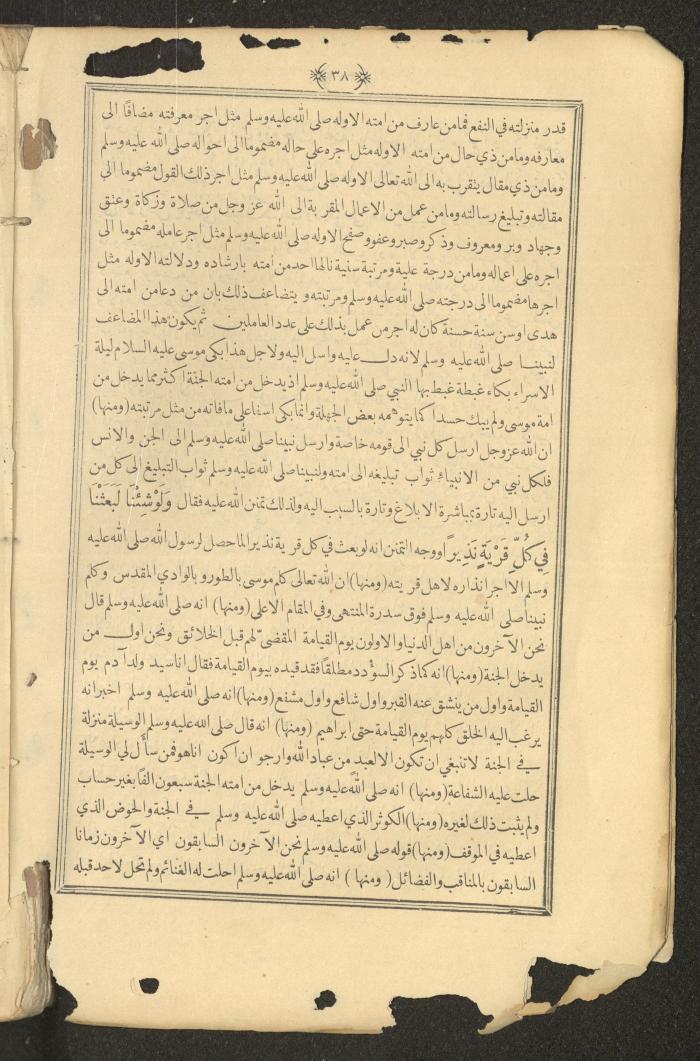 ٣٨
قدر منزلته في النفع فمامن عارف من امته الاوله صلى الله عليه وسلم مثل اجر معرفته مضافا الى
معارفه ومامن ذي حال من امته الاوله مثل اجره على حاله مضموما الى احواله صلى الله عليه وسلم
ومامن ذي مقال يتقرب به الى الله تعالى الاوله صلى الله عليه وسلم مثل اجر ذلك القول مضموما الى
مقالته وتبليغ رسالته ومامن عمل من الاعمال المقربة الى الله عز وجل من صلاة وزكاة وعتق
وجهاد وبر ومعروف وذكر وصبر وعفو وصفح الاوله صلى الله عليه وسلم مثل اجر عامله مضموما الى
اجره على اعماله ومامن درجة علية ومرتبة سنية نالها احد من امته بارشاده ودلالته الاوله مثل
اجرها مضموما الى درجته صلى الله عليه وسلم ومرتبته و يتضاعف ذلك بان من دعا من امته الى
هدى اوسن سنة حسنة كان له اجر من عمل بذلك على عدد العاملين ثم يكون هذا المضاعف
لنبينا صلى الله عليه وسلم لانه دل عليه وارسل اليه ولاجل هذا بكى موسى عليه السلام ليلة
الاسراء بكاء غبطة غبط بها النبي صلى الله عليه وسلم اذ يدخل من امته الجنة اكثر مما يدخل من
امة موسى ولم يبك حسدا كما يتوهمه بعض الجهلة وانما بكى اسفا على مافاته من مثل مرتبته (ومنها)
ان الله عز وجل ارسل كل نبي الى قومه خاصة وارسل نبينا صلى الله عليه وسلم الى الجن والانس
فلكل نبي من الانبياء ثواب تبليغه الى امته ولنبينا صلى الله عليه وسلم ثواب التبليغ الى كل من
ارسل اليه تارة بمباشرة الابلاغ وتارة بالسبب اليه ولذلك تمنن الله عليه فقال وَلَوْ شِئْنَا لَبَعَثْنَا
فِي كُلِّ قَرْيَةٍ نَذِيرًا ووجه التمنن انه لو بعث في كل قرية نذير الما حصل لرسول الله صلى الله عليه
وسلم الااجر انذاره لاهل قريته (ومنها) ان الله تعالى كلم موسى بالطور و بالوادي المقدس وكلم
نبينا صلى الله عليه وسلم فوق سدرة المنتهى وفي المقام الاعلى (ومنها) انه صلى الله عليه وسلم قال
نحن الآخرون من اهل الدنيا والاولون يوم القيامة المقضيّ لهم قبل الخلائق ونحن اول من
يدخل الجنة (ومنها) انه كما ذكر السؤدد مطلقاً فقد قيده بيوم القيامة فقال انا سيد ولد آدم يوم
القيامة واول من ينشق عنه القبر واول شافع واول مشفع (ومنها) انه صلى الله عليه وسلم اخبر انه
يرغب اليه الخلق كلهم يوم القيامة حتى ابراهيم (ومنها) انه قال صلى الله عليه وسلم الوسيلة منزلة
في الجنة لا تنبغي ان تكون الا لعبد من عباد الله وارجو ان اكون اناهو فمن سأل لي الوسيلة
حلت عليه الشفاعة (ومنها) انه صلى الله عليه وسلم يدخل من امته الجنة سبعون الفاً بغير حساب
ولم يثبت ذلك لغيره (ومنها) الكوثر الذي اعطيه صلى الله عليه وسلم في الجنة والحوض الذي
اعطيه في الموقف (ومنها) قوله صلى الله عليه وسلم نحن الآخرون السابقون اي الآخرون زمانا
السابقون بالمناقب والفضائل (ومنها) انه صلى الله عليه وسلم احلت له الغنائم ولم تحل لاحد قبله